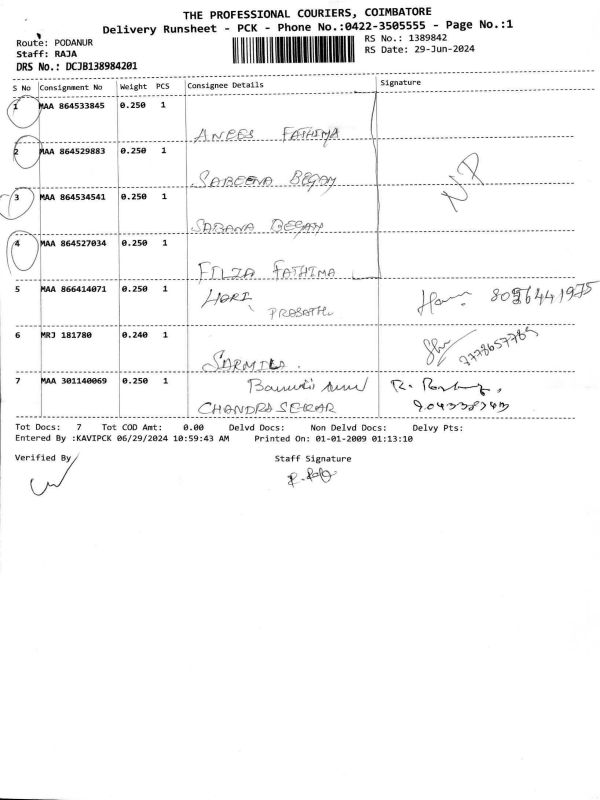 THE PROFESSIONAL COURIERS, COIMBATORE
Delivery Runsheet - PCK - Phone No.:0422-3505555 - Page No.:1
Route: PODANUR
RS No.: 1389842
Staff: RAJA
RS Date: 29-Jun-2024
DRS No.: DCJB138984201
S No Consignment No Weight PCS Consignee Details Signature
1 MAA 864533845 0.250 1
ANEES FATHIMA
2 MAA 864529883 0.250 1
SABEENA BEGAM
NP
3 MAA 864534541 0.250 1
SABANA BEGAM
4 MAA 864527034 0.250 1
FILZA FATHIMA
5 MAA 866414071 0.250 1
HARI
PRASATH
6 MRJ 181780 0.240 1
SARMILA.
7778657785
7 MAA 301140069 0.250 1
CHANDRA SEKAR
Tot Docs: 7 Tot COD Amt: 0.00 Delvd Docs: Non Delvd Docs: Delvy Pts:
Entered By :KAVIPCK 06/29/2024 10:59:43 AM Printed On: 01-01-2009 01:13:10
Verified By
Staff Signature